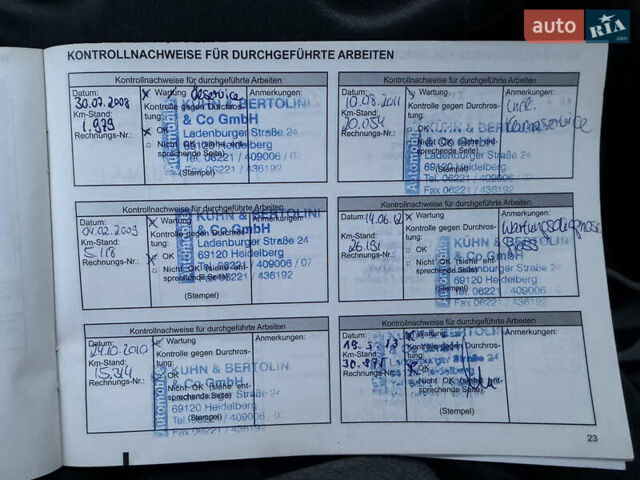 auto RIA.com
KONTROLLNACHWEISE FÜR DURCHGEFÜHRTE ARBEITEN
Kontrollnachweise für durchgeführte Arbeiten
Datum: 30.07.2008
Wartung
Anmerkungen:
Km-Stand: 1.979
Kontrolle gegen Durchrostung:
OK
Rechnungs-Nr.:
Nicht OK (siehe entsprechende Seite)
(Stempel)
Automobile
KUHN & BERTOLINI
& Co GmbH
Ladenburger Straße 24
69120 Heidelberg
Tel. 06221 / 409006 / 07
Fax 06221 / 436192
Kontrollnachweise für durchgeführte Arbeiten
Datum: 10.08.2011
Wartung
Anmerkungen:
incl.
Klimaservice
Km-Stand: 20.054
Kontrolle gegen Durchrostung:
OK
Rechnungs-Nr.:
Nicht OK (siehe entsprechende Seite)
(Stempel)
Automobile
KUHN & BERTOLINI
& Co GmbH
Ladenburger Straße 24
69120 Heidelberg
Tel. 06221 / 409006 /
Fax 06221 / 436192
Kontrollnachweise für durchgeführte Arbeiten
Datum: 04.02.2009
Wartung
Anmerkungen:
Km-Stand: 5.118
Kontrolle gegen Durchrostung:
OK
Rechnungs-Nr.:
Nicht OK (siehe entsprechende Seite)
(Stempel)
Automobile
KUHN & BERTOLINI
& Co GmbH
Ladenburger Straße 24
69120 Heidelberg
Tel. 06221 / 409006 / 07
Fax 06221 / 436192
Kontrollnachweise für durchgeführte Arbeiten
Datum: 14.06.12
Wartung
Anmerkungen:
Km-Stand: 26.131
Kontrolle gegen Durchrostung:
OK
Rechnungs-Nr.:
Nicht OK (siehe entsprechende Seite)
(Stempel)
KUHN & BERTOLINI
& Co GmbH
Ladenburger Straße 24
69120 Heidelberg
Tel. 06221 / 409006
Fax 06221 / 436192
Kontrollnachweise für durchgeführte Arbeiten
Datum: 24.10.2010
Wartung
Anmerkungen:
Km-Stand: 15.314
Kontrolle gegen Durchrostung:
OK
Rechnungs-Nr.:
Nicht OK (siehe entsprechende Seite)
(Stempel)
Automobile
KUHN & BERTOLINI
& Co GmbH
Ladenburger Straße 24
69120 Heidelberg
Tel. 06221 / 409006 / 07
Fax 06221 / 436192
Kontrollnachweise für durchgeführte Arbeiten
Datum:
Wartung
Anmerkungen:
Km-Stand:
Kontrolle gegen Durchrostung:
OK
Rechnungs-Nr.:
Nicht OK (siehe entsprechende Seite)
(Stempel)
23